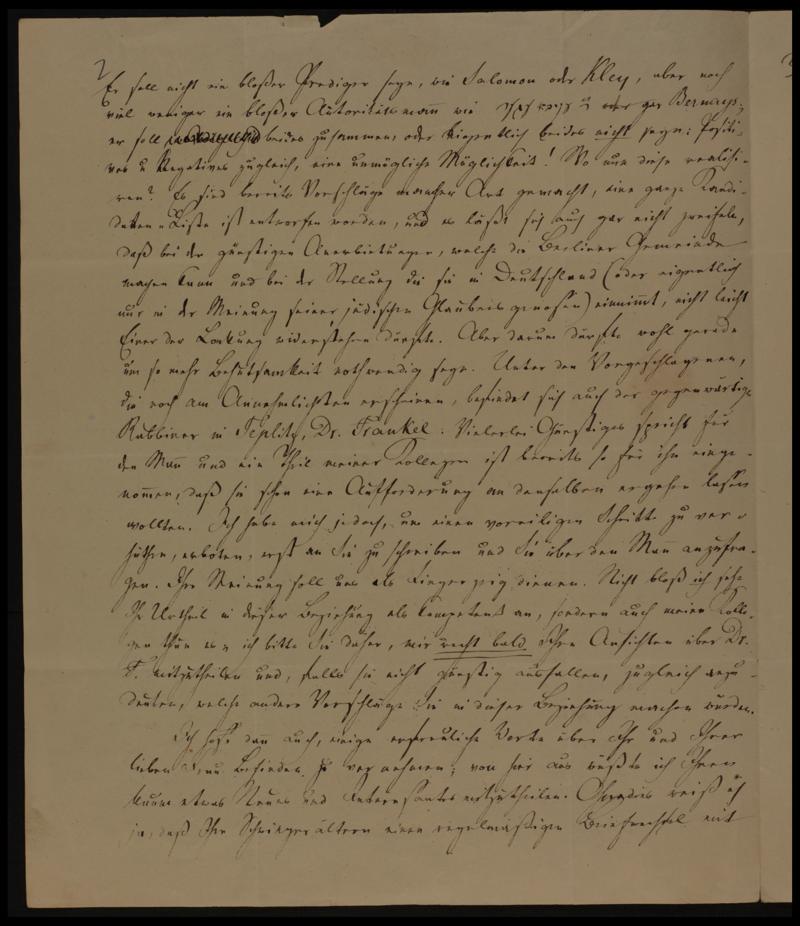 2
Er soll nicht ein bloßer Prediger seyn, wie Salomon oder Kley, aber noch
viel weniger ein bloßer Autoritätsmann wie oder gar Bernays;
er soll beides zusammen, oder eigentlich beides nicht seyn: Positi-
ves u Negatives zugleich, eine unmögliche Möglichkeit! Wo nun diese realisi-
ren? Es sind bereits Vorschläge mancher Art gemacht, eine ganze Kandi-
daten-Liste ist entworfen worden, und es läßt sich auch gar nicht zweifeln,
daß bei den günstigen Anerbietungen, welche die Berliner Gemeinde
machen kann und bei der Stellung die sie in Deutschland (oder eigentlich
nur in der Meinung seiner jüdischen Glaubensgenossen) einnimmt, nicht leicht
Einer der Lockung widerstehen dürfte. Aber darum dürfte wohl gerade
um so mehr Behutsamkeit nothwendig seyn. Unter den Vorgeschlagenen,
die noch am Annehmlichsten erscheinen, befindet sich auch der gegenwärtige
Rabbiner in Teplitz, Dr. Frankel. Vielerlei Günstiges spricht für
den Mann und ein Theil meiner Kollegen ist bereits so für ihn einge-
nommen, daß sie schon eine Aufforderung an denselben ergehen lassen
wollten. Ich habe mich jedoch, um einen voreiligen Schritt zu ver-
hüthen, erboten, erst an Sie zu schreiben und Sie über den Mann anzufra-
gen. Ihre Meinung soll uns als Fingerzeig dienen. Nicht bloß ich sehe
Ihr Urtheil in dieser Beziehung als kompetent an, sondern auch meine Kolle-
gen thun es; ich bitte Sie daher, mir recht bald Ihre Ansichten über Dr.
F. mitzutheilen und, falls sie nicht günstig ausfallen, zugleich anzu-
deuten, welche andere Vorschläge Sie in dieser Beziehung machen würden.
Ich hoffe dann auch, einige erfreuliche Worte über Ihr und Ihrer
lieben Frau Befinden zu vernehmen; von hier aus wüßte ich Ihnen
kaum etwas Neues und Interessantes mitzutheilen. Ohnedies weiß ich
ja, daß Ihre Schwiegerältern einen regelmäßigen Briefwechsel mit